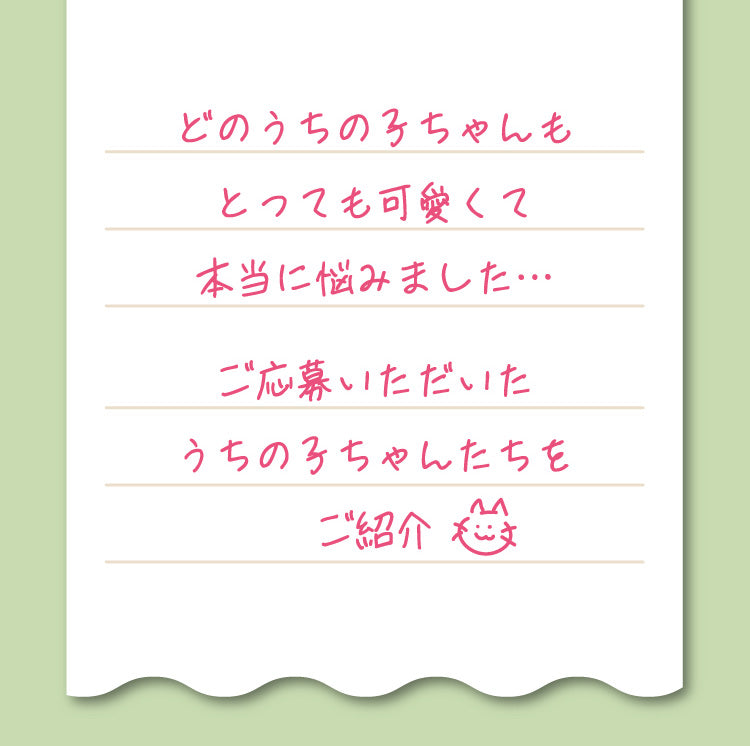 どのうちの子ちゃんも
とっても可愛くて
本当に悩みました…
ご応募いただいた
うちの子ちゃんたちを
ご紹介